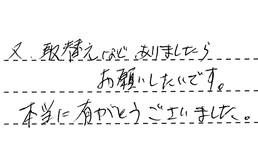 又、取替えなどありましたら
お願いしたいです。
本当に有がとうございました。